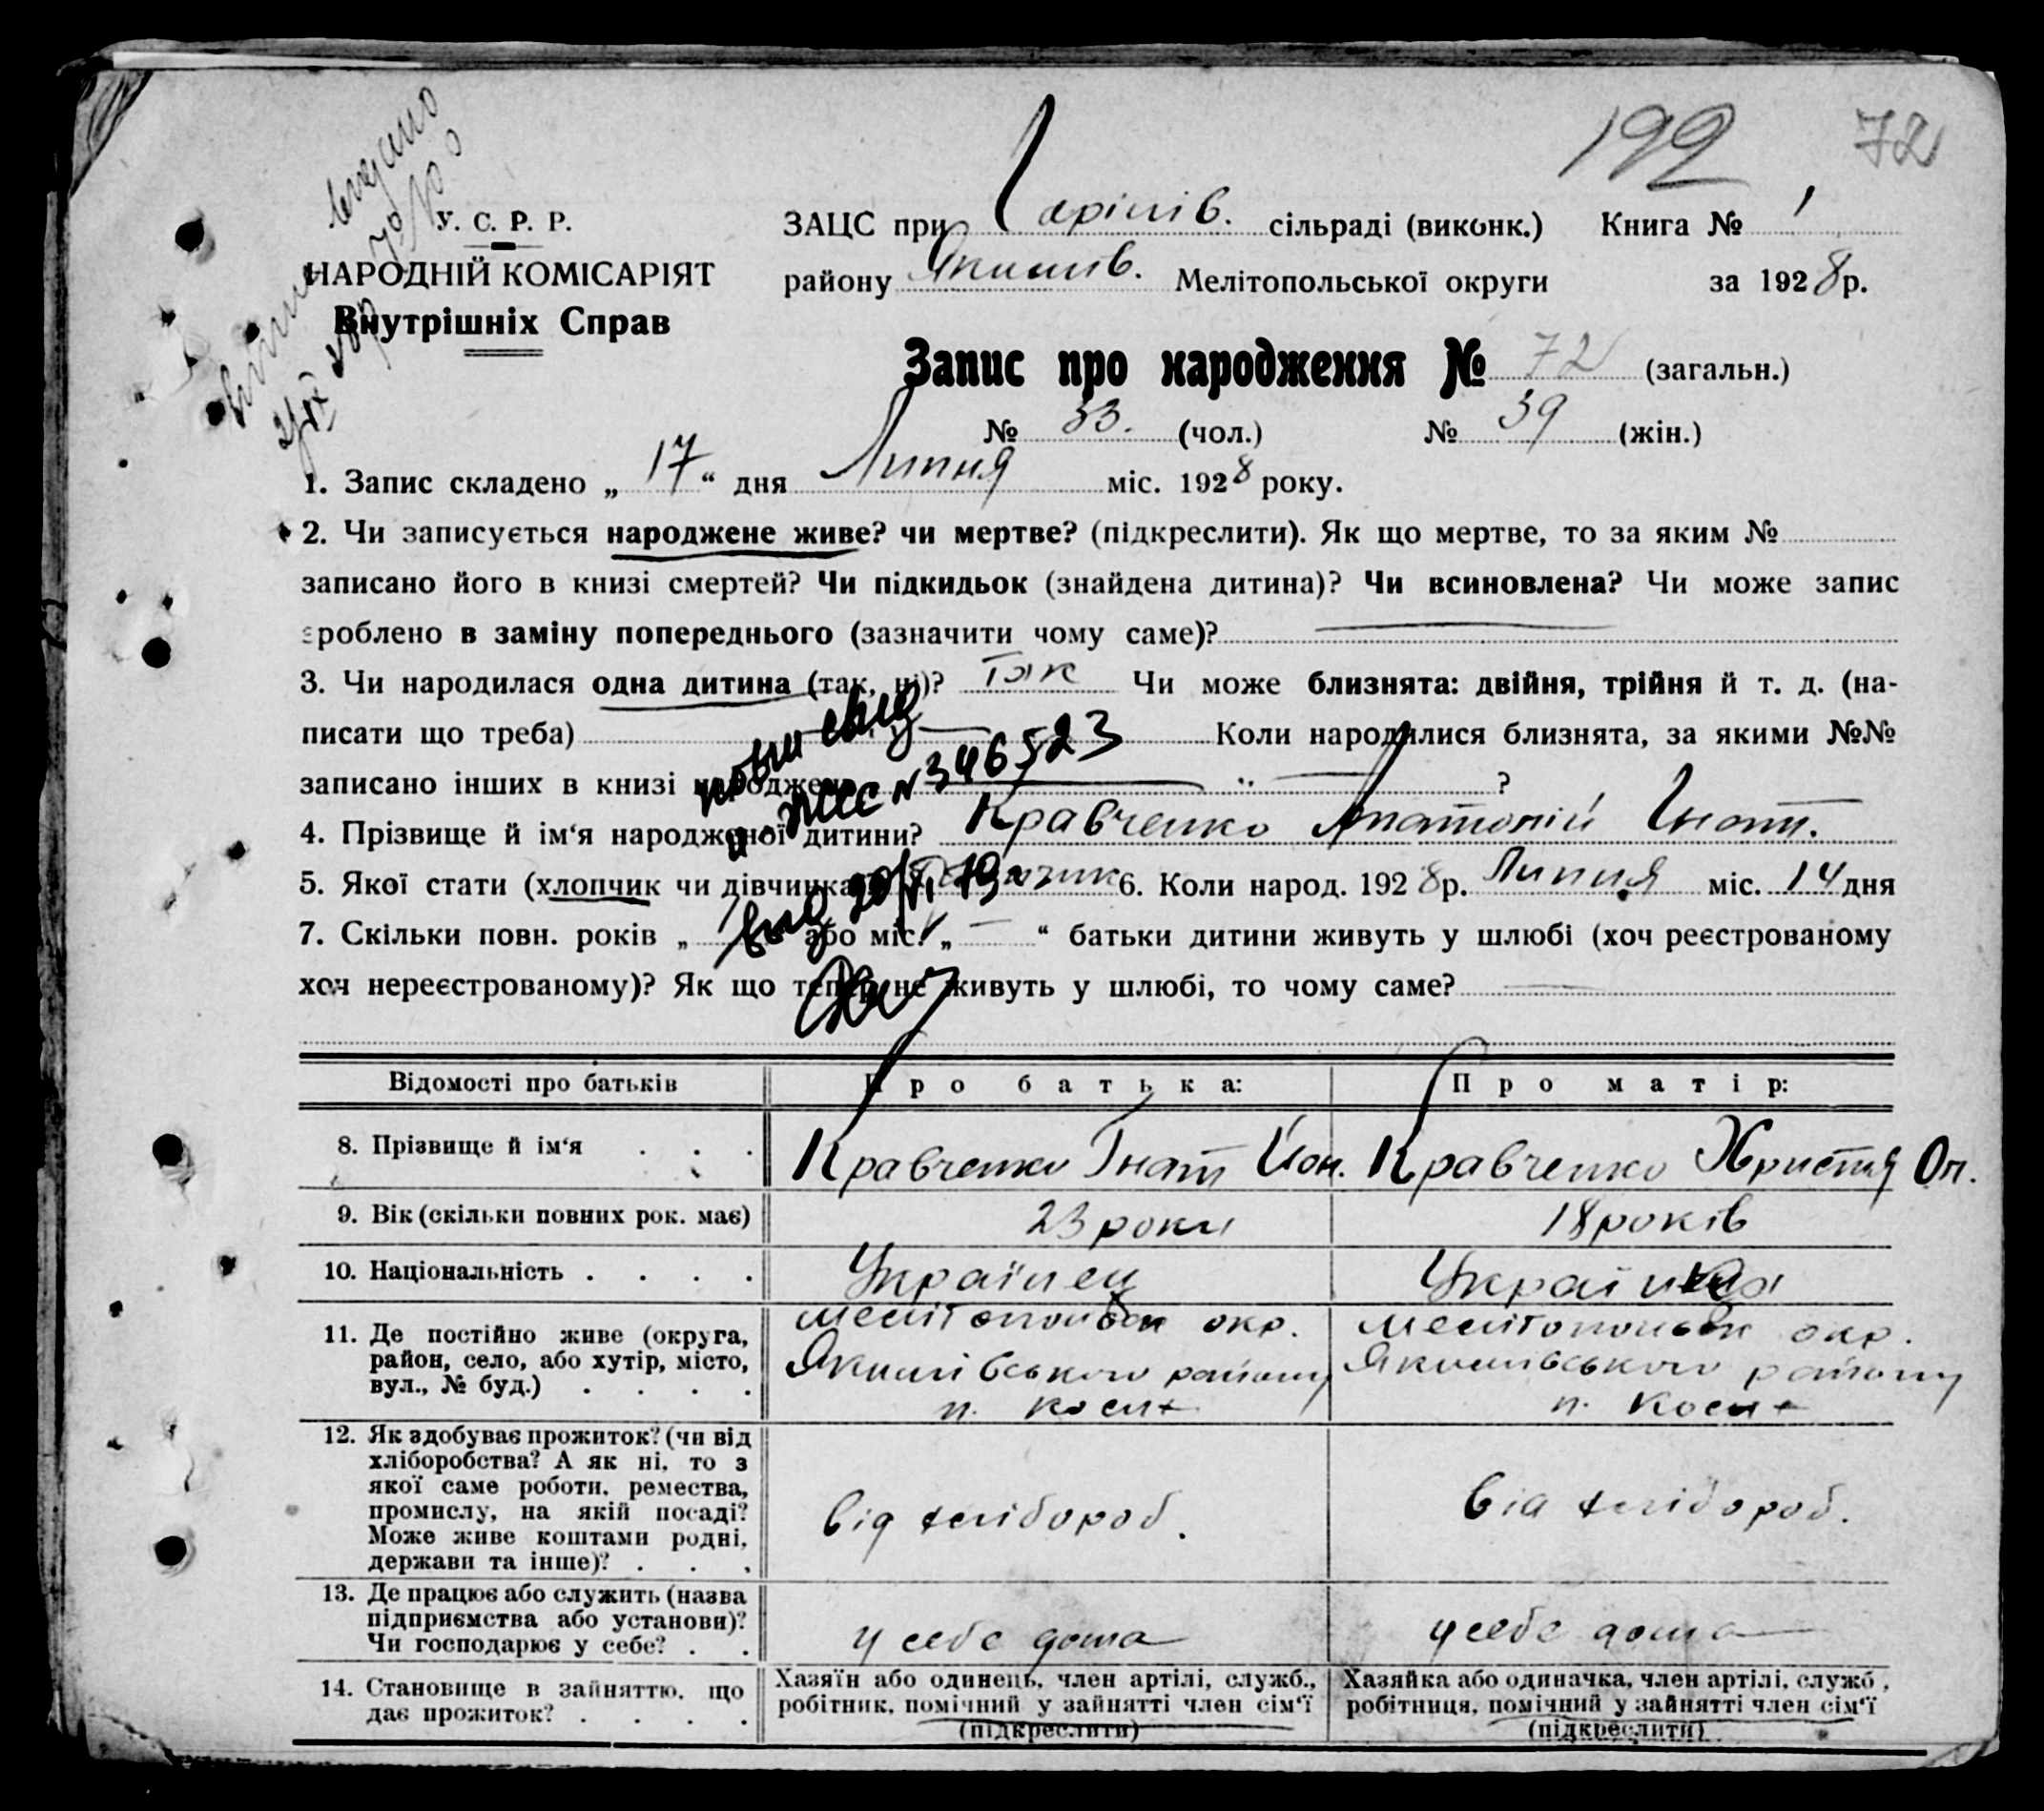 192 72
У. С. Р. Р.
НАРОДНІЙ КОМІСАРІЯТ
Внутрішніх Справ
ЗАЦС при сільраді (виконк.) Книга № 1
району Якимів. Мелітопольської округи за 1928 р.
Запис про народження № 72 (загальн.)
№ 33. (чол.) № 39 (жін.)
1. Запис складено „ 17 “ дня Липня міс. 1928 року.
2. Чи записується народжене живе? чи мертве? (підкреслити). Як що мертве, то за яким №
записано його в книзі смертей? Чи підкидьок (знайдена дитина)? Чи всиновлена? Чи може запис
зроблено в заміну попереднього (зазначити чому саме)?
3. Чи народилася одна дитина (так, ні)? Так Чи може близнята: двійня, трійня й т. д. (на-
писати що треба) Коли народилися близнята, за якими №№
записано інших в книзі народжень ?
4. Прізвище й ім‘я народженої дитини? Кравченко Анатолій Гнат.
5. Якої стати (хлопчик чи дівчинка) 6. Коли народ. 1928 р. Липня міс. 14 дня
7. Скільки повн. років „ “ або міс. „ — “ батьки дитини живуть у шлюбі (хоч реєстрованому
хоч нереєстрованому)? Як що тепер не живуть у шлюбі, то чому саме?
№ 346523
Відомості про батьків Про батька: Про матір:
8. Прізвище й ім‘я . . . Кравченко Гнат Йон. Кравченко Христя Оп.
9. Вік (скільки повних рок. має) 23 роки 18 років
10. Національність . . . . Українец Українка
11. Де постійно живе (округа, район, село, або хутір, місто, вул., № буд.) . . . .
Мелітопольск окр. Мелітопольск окр.
Якимівського району Якимівського району
12. Як здобуває прожиток? (чи від
хліборобства? А як ні, то з
якої саме роботи, ремества,
промислу, на якій посаді?
Може живе коштами родні,
держави та інше)? . . .
від хлібороб. від хлібороб.
13. Де працює або служить (назва
підприємства або установи)?
Чи господарює у себе? . .
у себе дома у себе дома
14. Становище в зайняттю, що
дає прожиток? . . . .
Хазяїн або одинець, член артілі, служб.,
робітник, помічний у зайнятті член сім‘ї
(підкреслити)
Хазяйка або одиначка, член артілі, служб.,
робітниця, помічний у зайнятті член сім‘ї
(підкреслити)